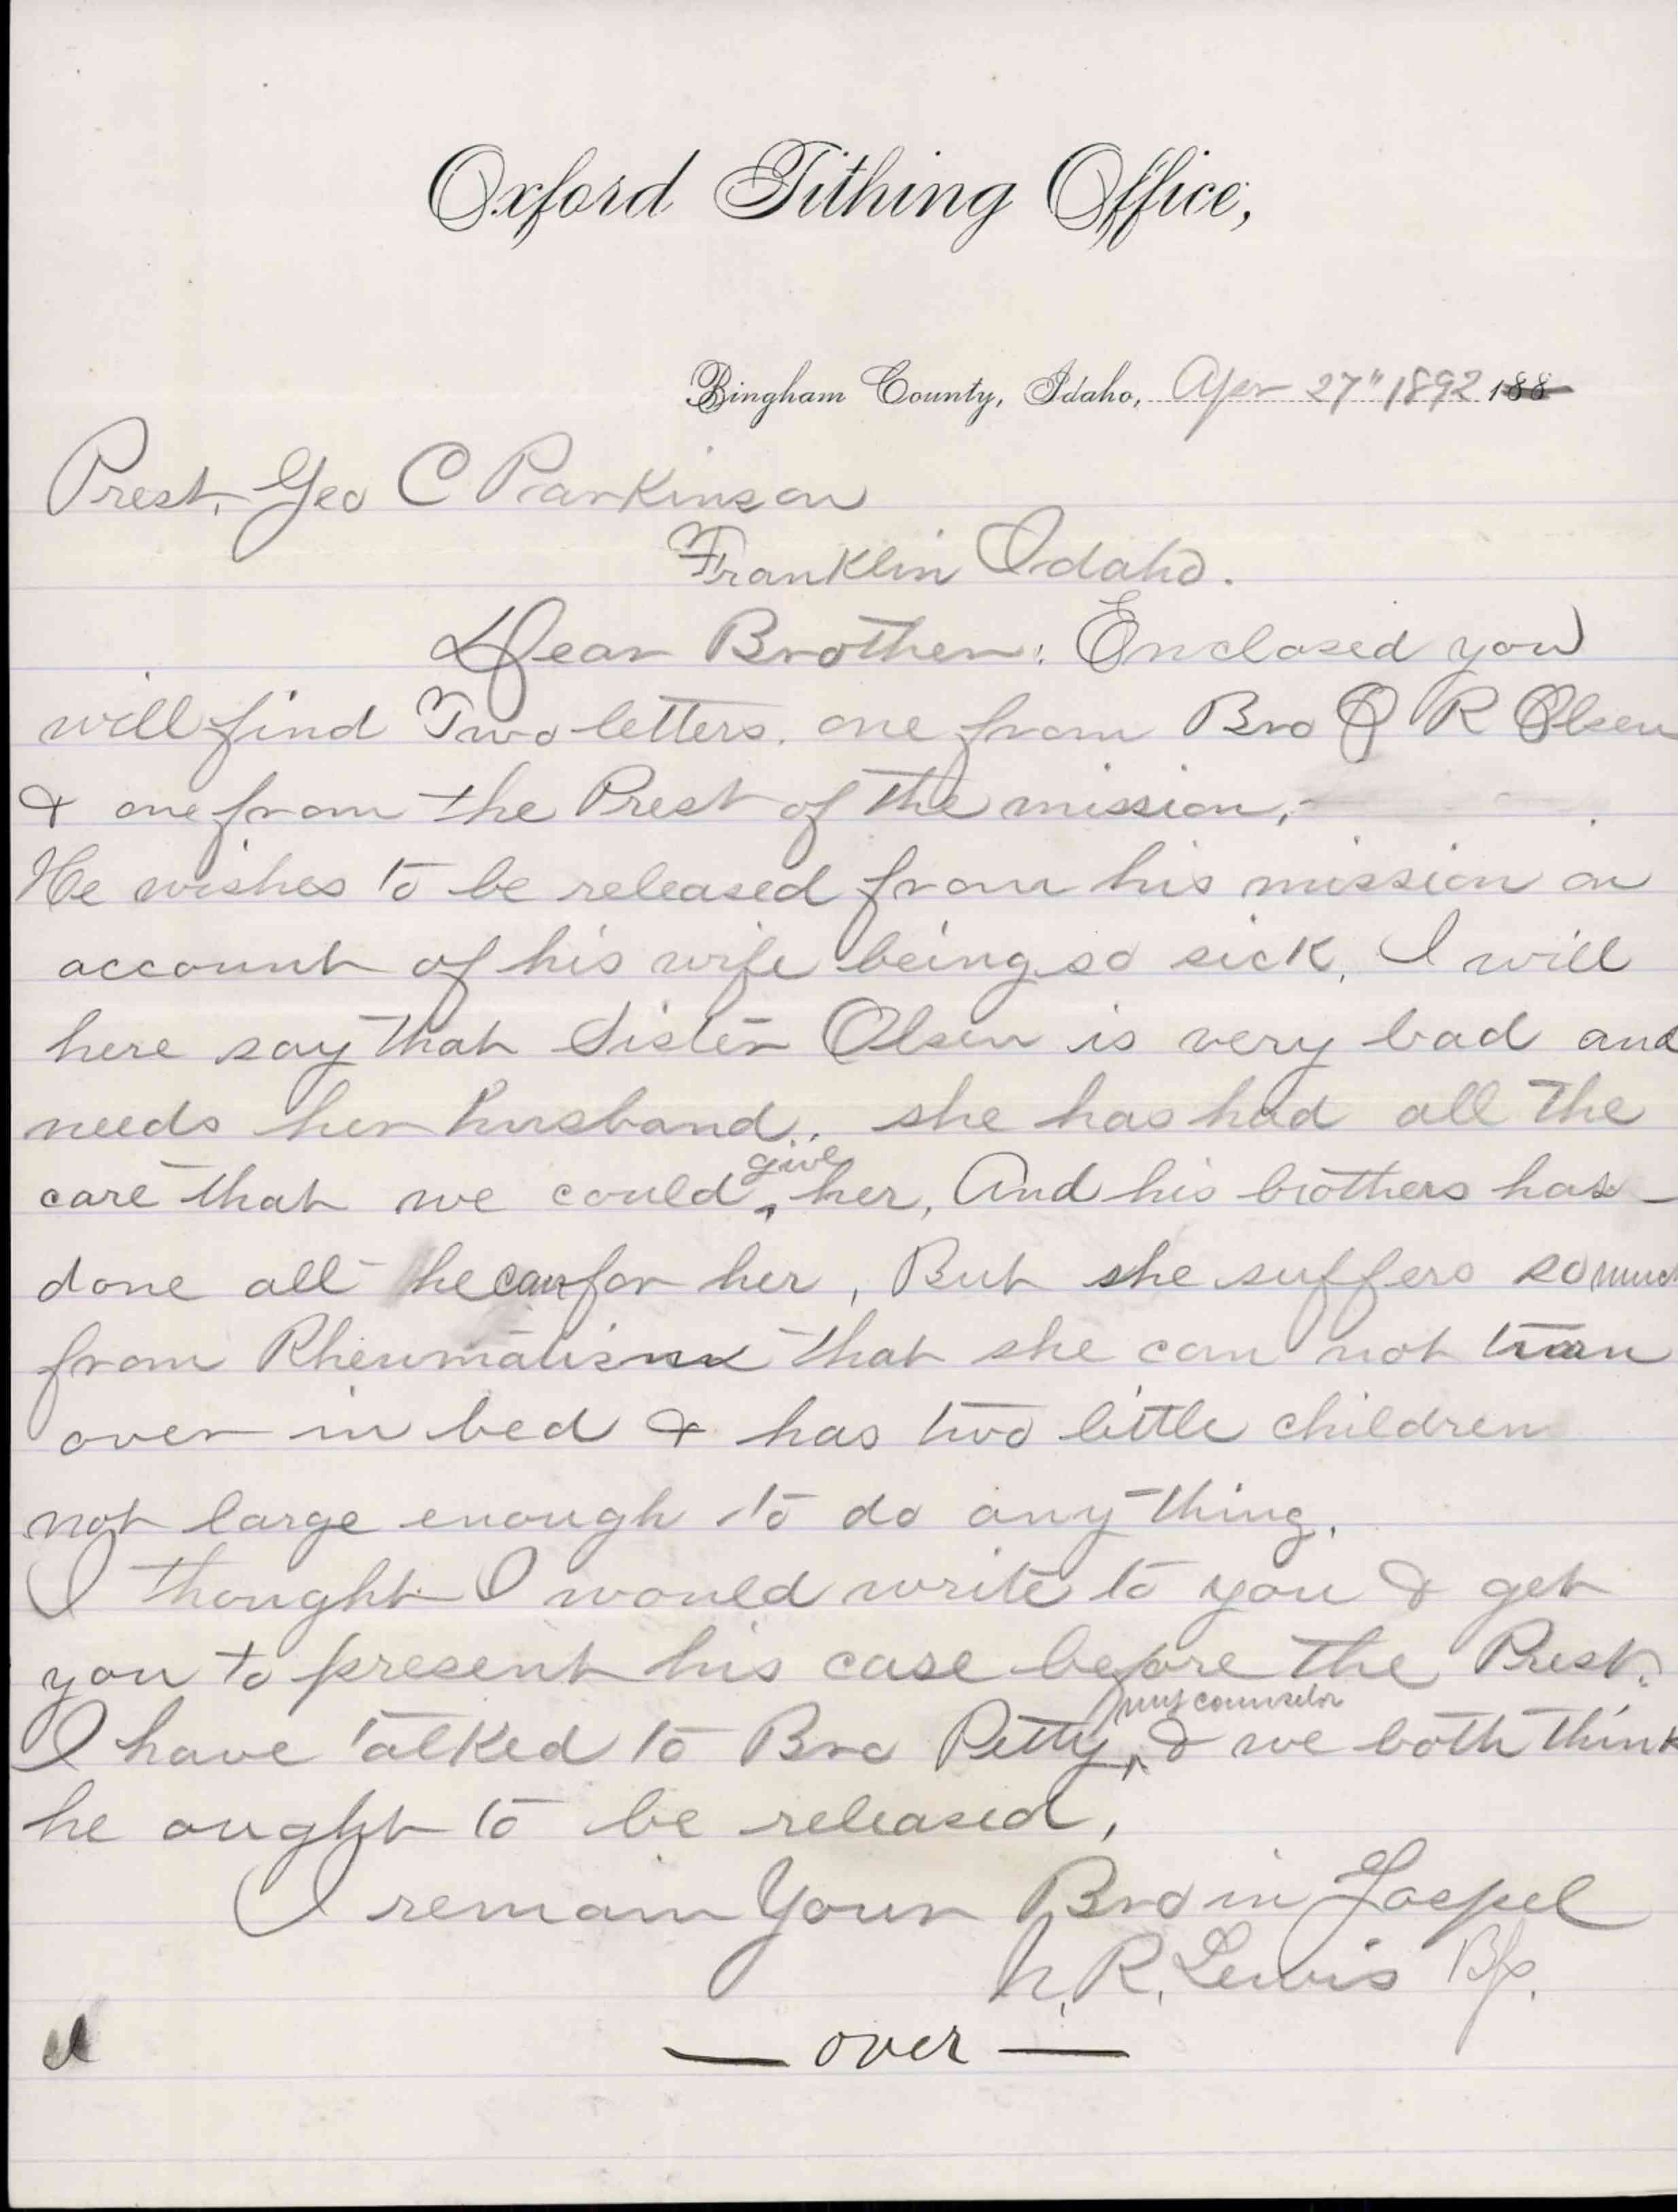 Oxford Tithing Office,
Bingham County, Idaho, Apr 27" 1892 188
Prest. Geo C Parkinson
Franklin Idaho.
Dear Brother: Enclosed you
will find Two letters. one from Bro O R Olsen
& one from the Prest of the mission,
He wishes to be released from his mission on
account of his wife being so sick, I will
here say that Sister Olsen is very bad and
needs her husband. she has had all the
care that we could give her, And his brothers has
done all he can for her, But she suffers so much
from Rheumatism that she can not turn
over in bed & has two little children
not large enough to do any thing.
I thought I would write to you & get
you to present his case before the Prest.
I have talked to Bro Petty my counselor & we both think
he ought to be released,
I remain Your Bro in Gospel
N. R. Lewis Bp.
— over —